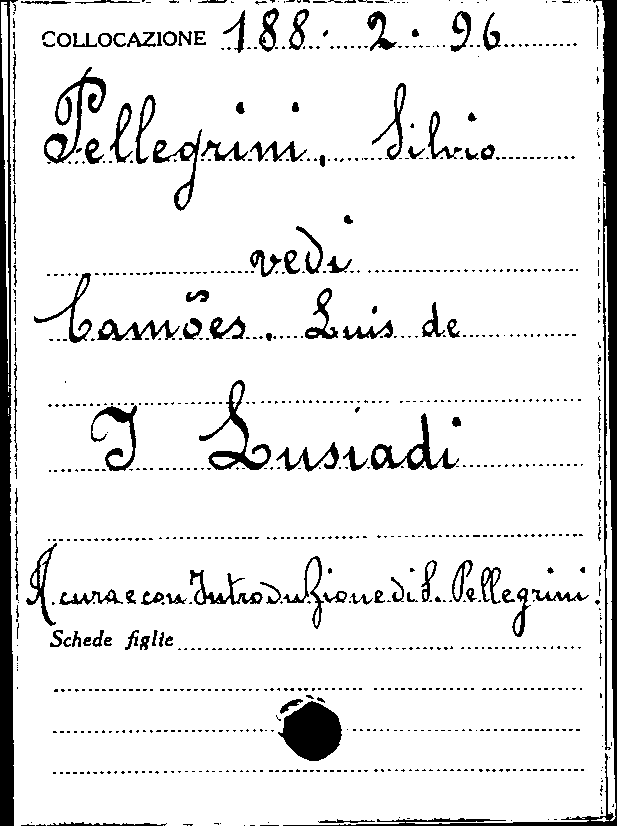 COLLOCAZIONE 188. 2. 96
Pellegrini, Silvio
vedi
Camões, Luis de
I Lusiadi
A cura e con Introduzione di S. Pellegrini.
Schede figlie